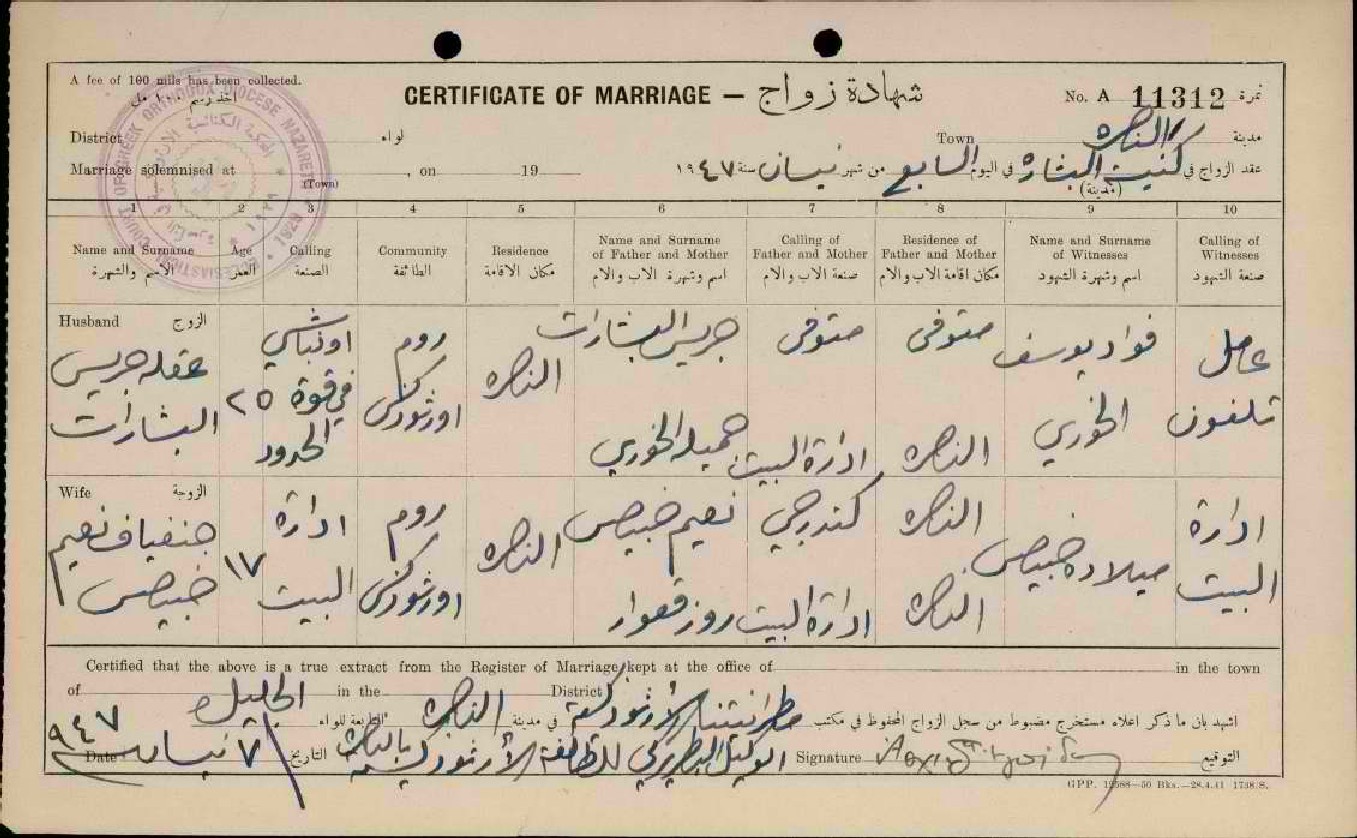 A fee of 100 mils has been collected.
CERTIFICATE OF MARRIAGE — شهادة زواج
No. A 11312 نمرة
District لواء
Town الناصره مدينة
Marriage solemnised at (Town) , on 19
عقد الزواج في كنيسة البشاره (مدينة) في اليوم السابع من شهر نيسان سنة ١٩٤٧
1 2 3 4 5 6 7 8 9 10
Name and Surname Age Calling Community Residence Name and Surname of Father and Mother Calling of Father and Mother Residence of Father and Mother Name and Surname of Witnesses Calling of Witnesses
الاسم والشهرة العمر الصنعة الطائفة مكان الاقامة اسم وشهرة الاب والام صنعة الاب والام مكان اقامة الاب والام اسم وشهرة الشهود صنعة الشهود
Husband الزوج
عقله جريس البشارات
٢٥
اونباشي في قوة الحدود
روم اورثوذكس
الناصره
جريس البشارات
متوفى
متوفى
فؤاد يوسف الخوري
عامل تلفون
جميله الخوري
ادارة البيت
الناصره
Wife الزوجة
نعيم خبيص
١٧
ادارة البيت
روم اورثوذكس
الناصره
نعيم خبيص
كندرجي
الناصره
ميلاده خبيص
ادارة البيت
روز قعوار
ادارة البيت
الناصره
Certified that the above is a true extract from the Register of Marriage kept at the office of in the town
of in the District
اشهد بان ما ذكر اعلاه مستخرج مضبوط من سجل الزواج المحفوظ في مكتب مطرانيتنا الارثوذكسية في مدينة الناصره التابعة للواء الجليل
Date ٧ نيسان ٩٤٧ التاريخ
الوكيل البطريركي للطائفة الارثوذكسية بالناصره
Signature التوقيع
GPP. 12588—50 Bks.—28.4.41 1738/S.